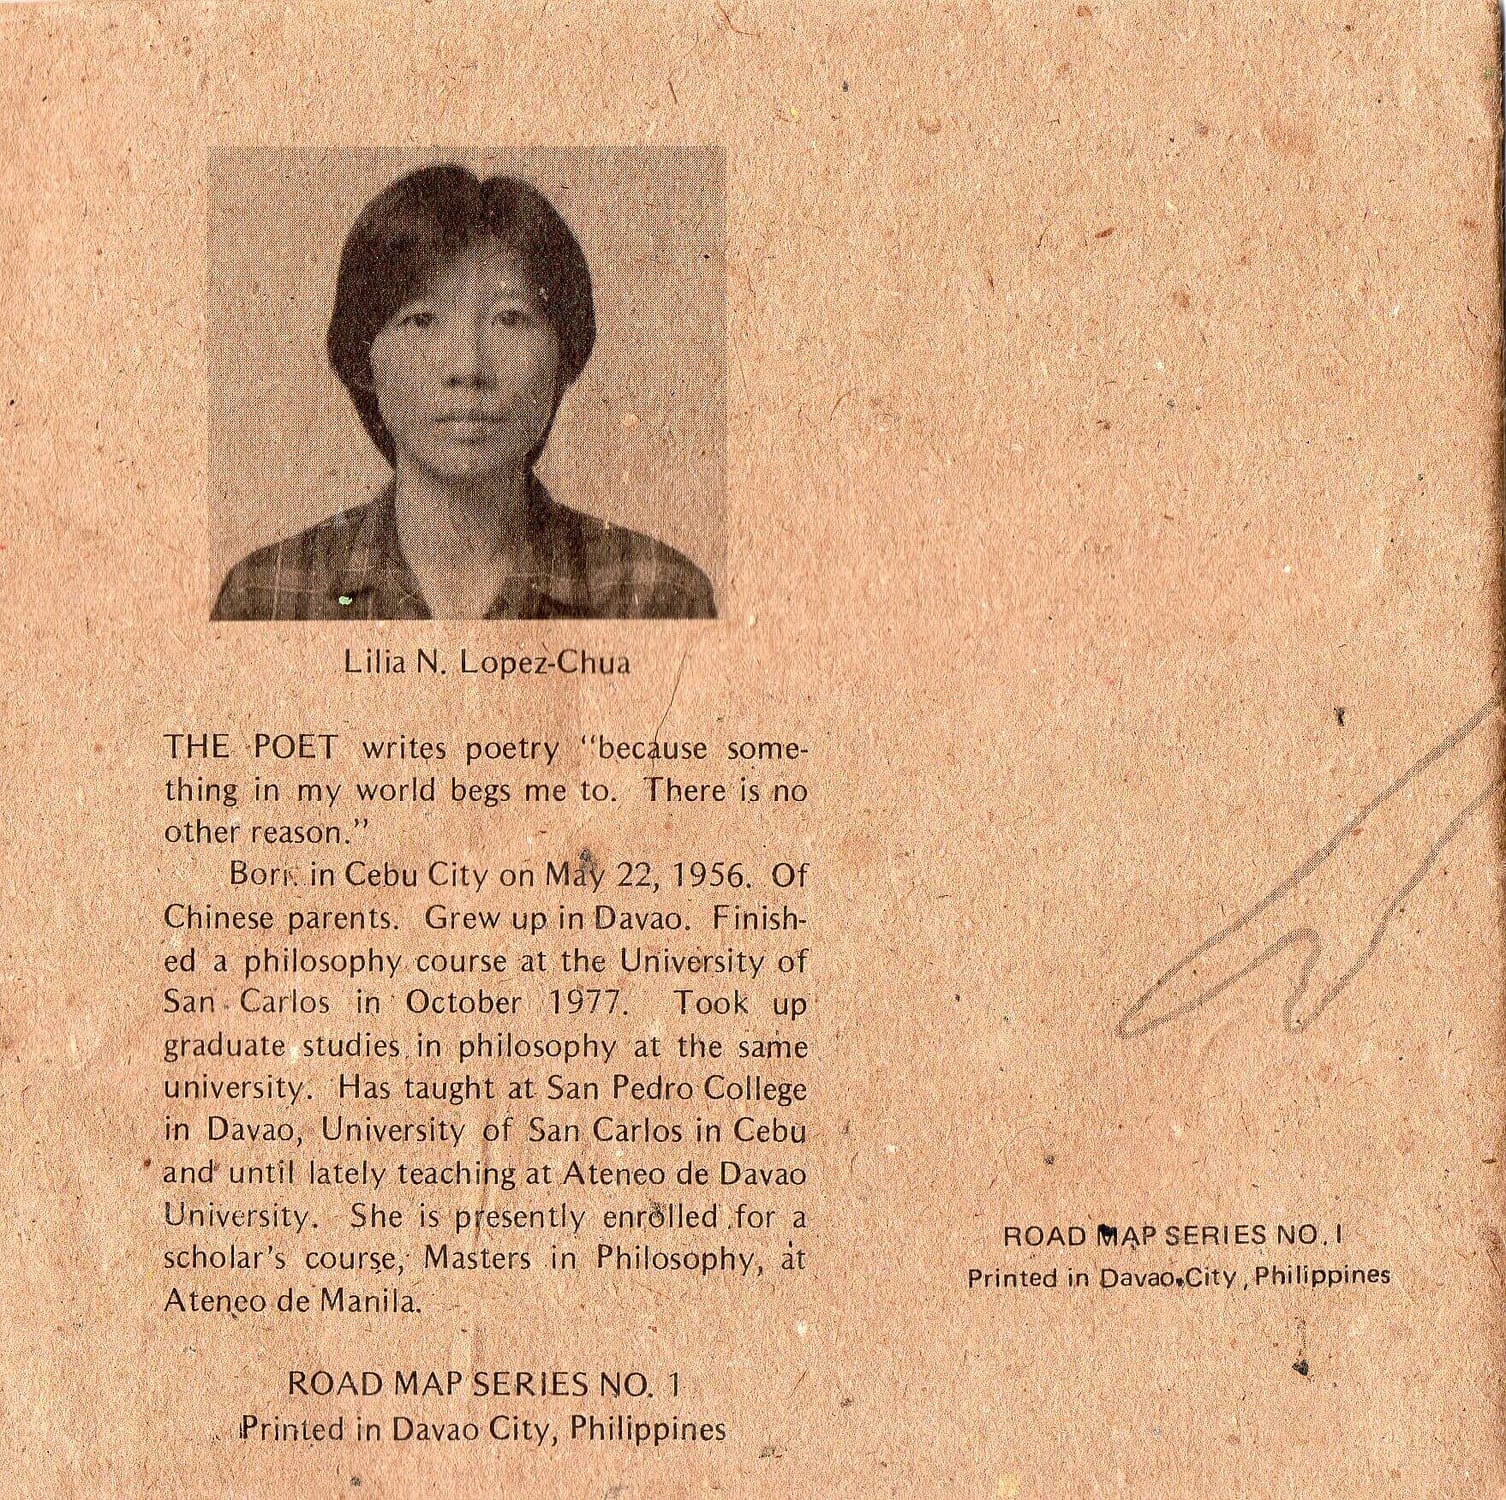 Lilia N. Lopez-Chua
THE POET writes poetry “because some-
thing in my world begs me to. There is no
other reason.”
Born in Cebu City on May 22, 1956. Of
Chinese parents. Grew up in Davao. Finish-
ed a philosophy course at the University of
San Carlos in October 1977. Took up
graduate studies in philosophy at the same
university. Has taught at San Pedro College
in Davao, University of San Carlos in Cebu
and until lately teaching at Ateneo de Davao
University. She is presently enrolled for a
scholar’s course, Masters in Philosophy, at
Ateneo de Manila.
ROAD MAP SERIES NO. 1
Printed in Davao City, Philippines
ROAD MAP SERIES NO. I
Printed in Davao City, Philippines